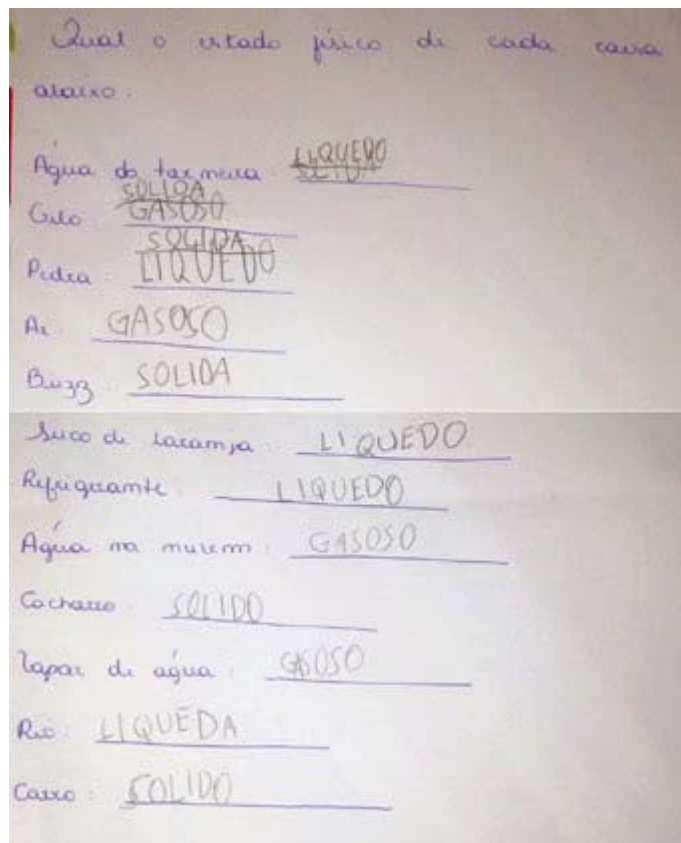 Qual o estado físico de cada coisa
abaixo.
Água da torneira: LIQUEDO
Gelo: SOLIDA GASOSO
Pedra: SOLIDA LIQUEDO
Ar: GASOSO
Buzz: SOLIDA
Suco de laranja: LIQUEDO
Refrigerante: LIQUEDO
Água na nuvem: GASOSO
Cachorro: SOLIDO
Vapor de água: GASOSO
Rio: LIQUEDA
Carro: SOLIDO